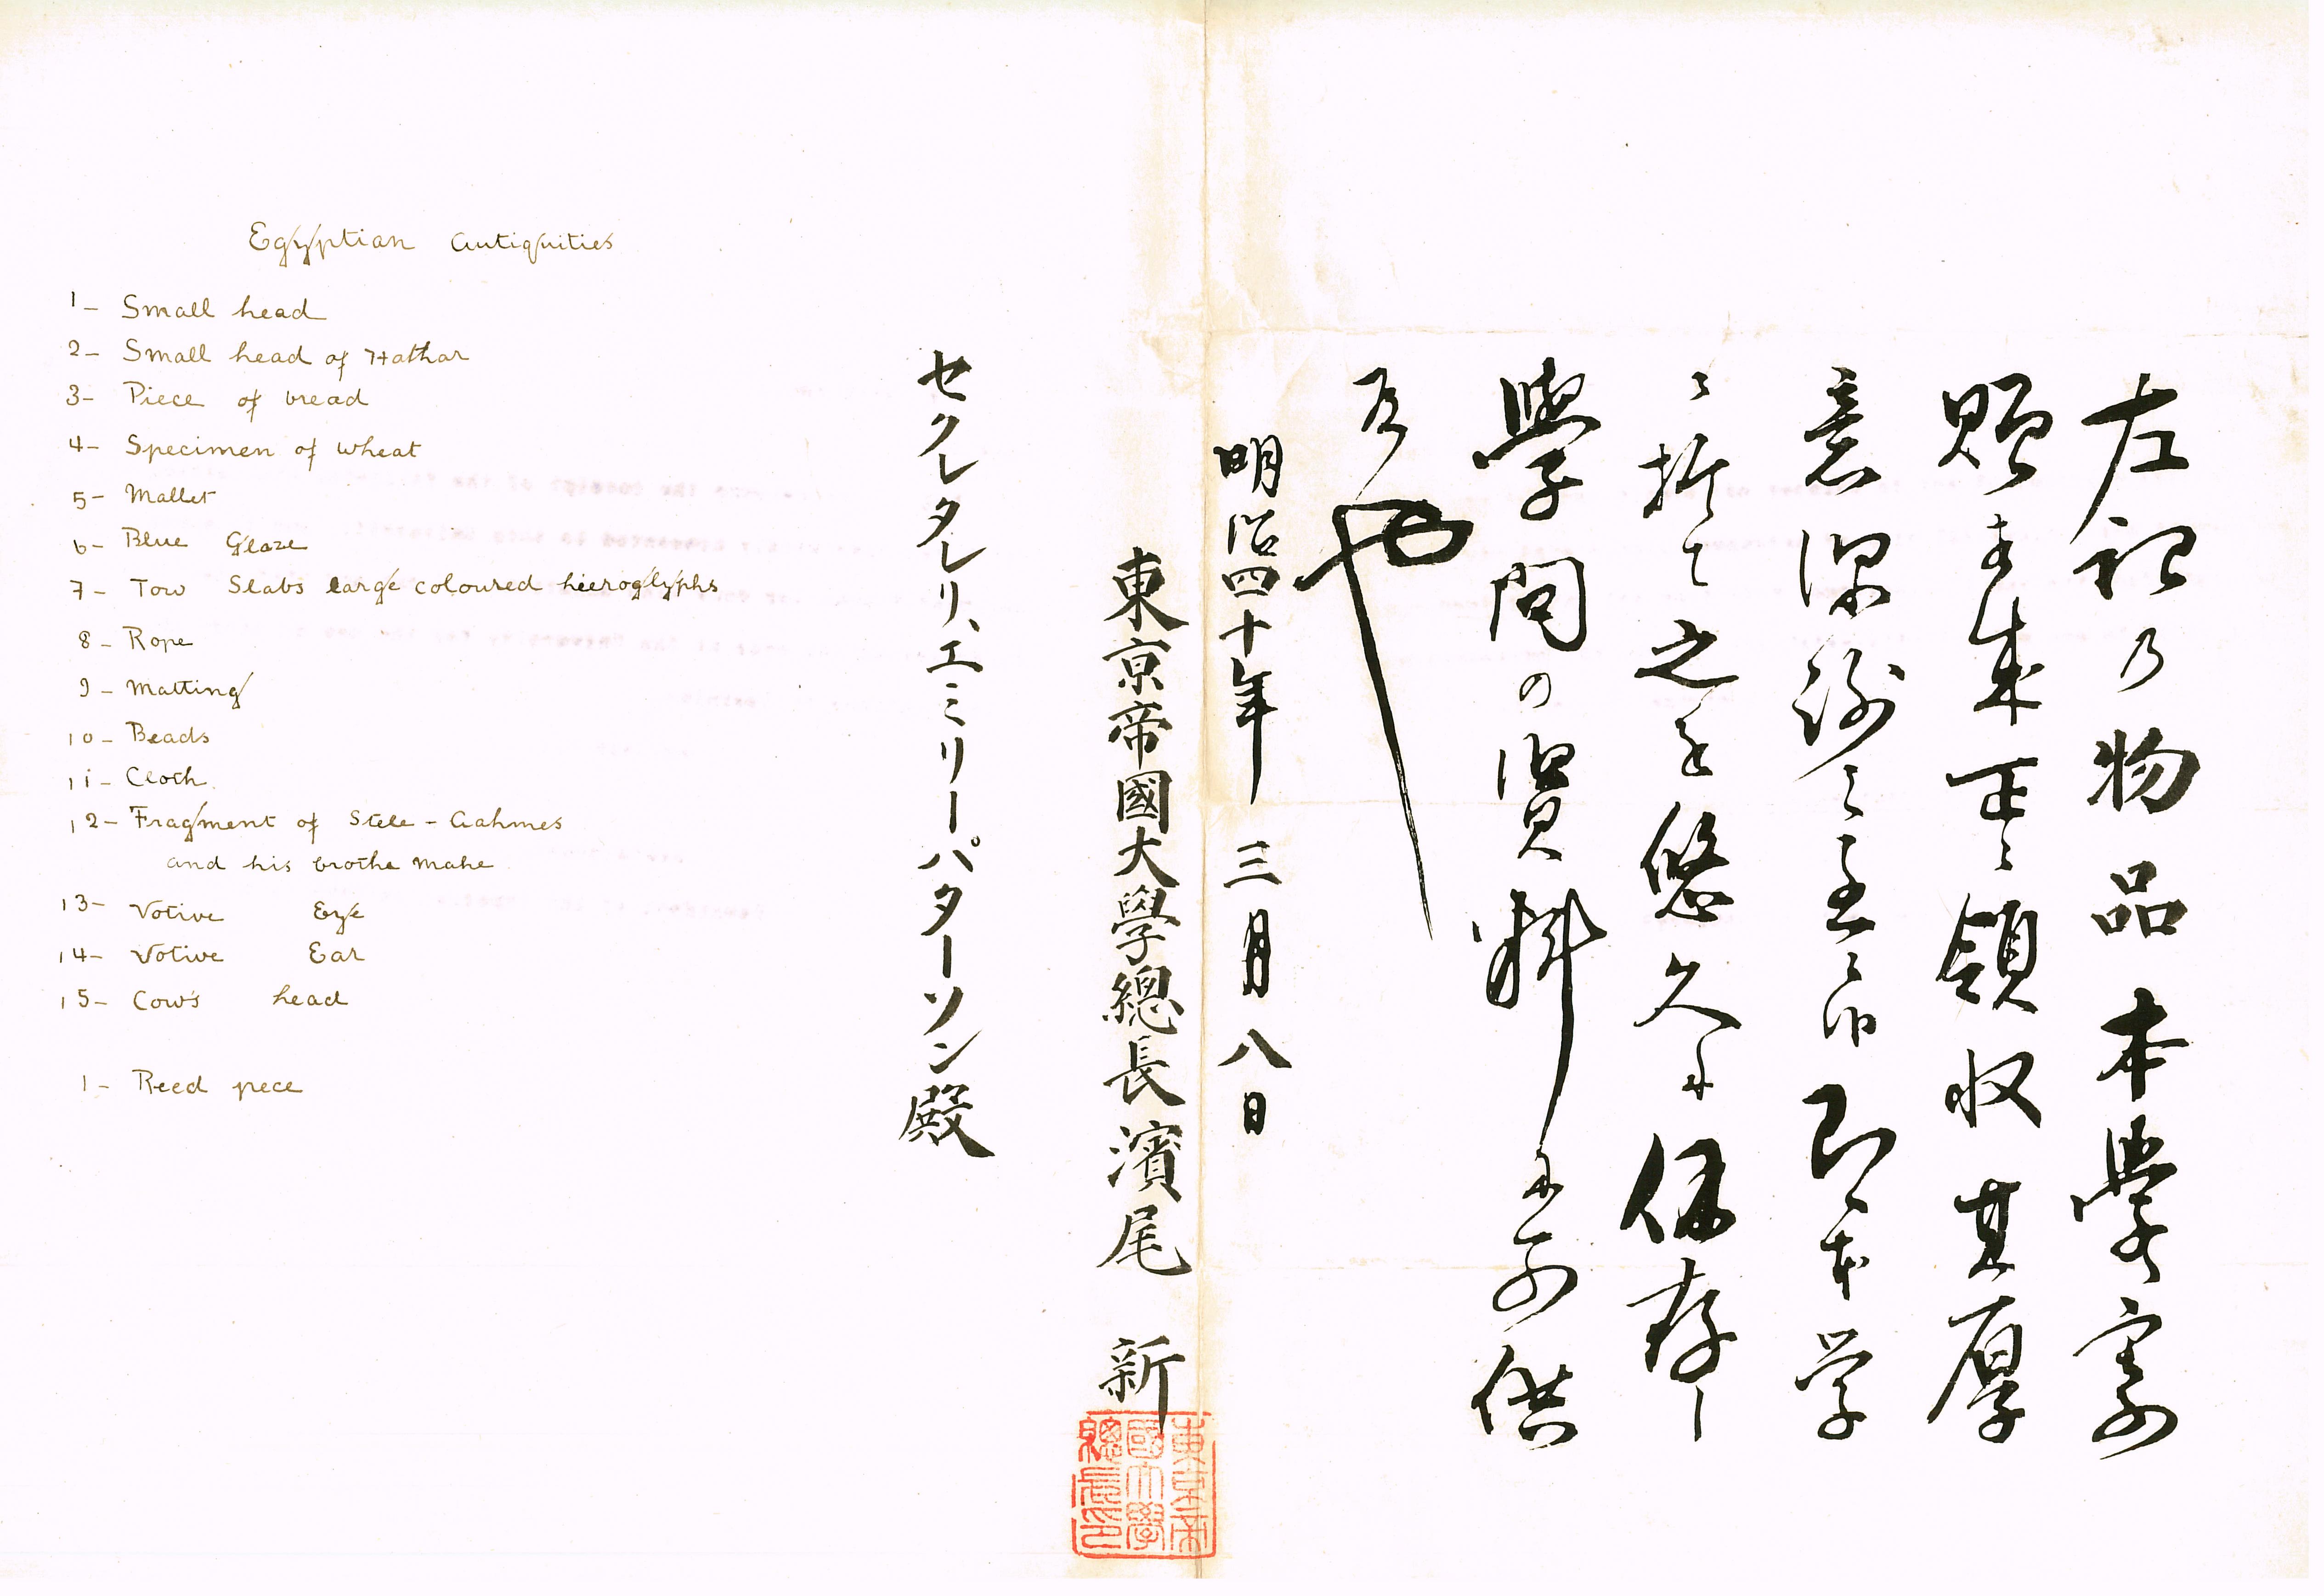 左記乃物品本學寄
贈相成正ニ領収其厚
意深謝之至ニ候即本学
ニ於て之を悠久に保存し
學問の資料に可供
候也
明治四十年 三月八日
東京帝國大學總長濱尾 新
東京帝國大學總長印
セクレタレリ、エミリーパターソン殿
Egyptian antiquities
1- Small head
2- Small head of Hathar
3- Piece of bread
4- Specimen of wheat
5- Mallet
6- Blue Glaze
7- Tow Slabs large coloured hieroglyphs
8- Rope
9- Matting
10- Beads
11- Cloth.
12- Fragment of Stele - Aahmes
and his brothe Mahe
13- Votive Eye
14- Votive Ear
15- Cow's head
1- Reed pece